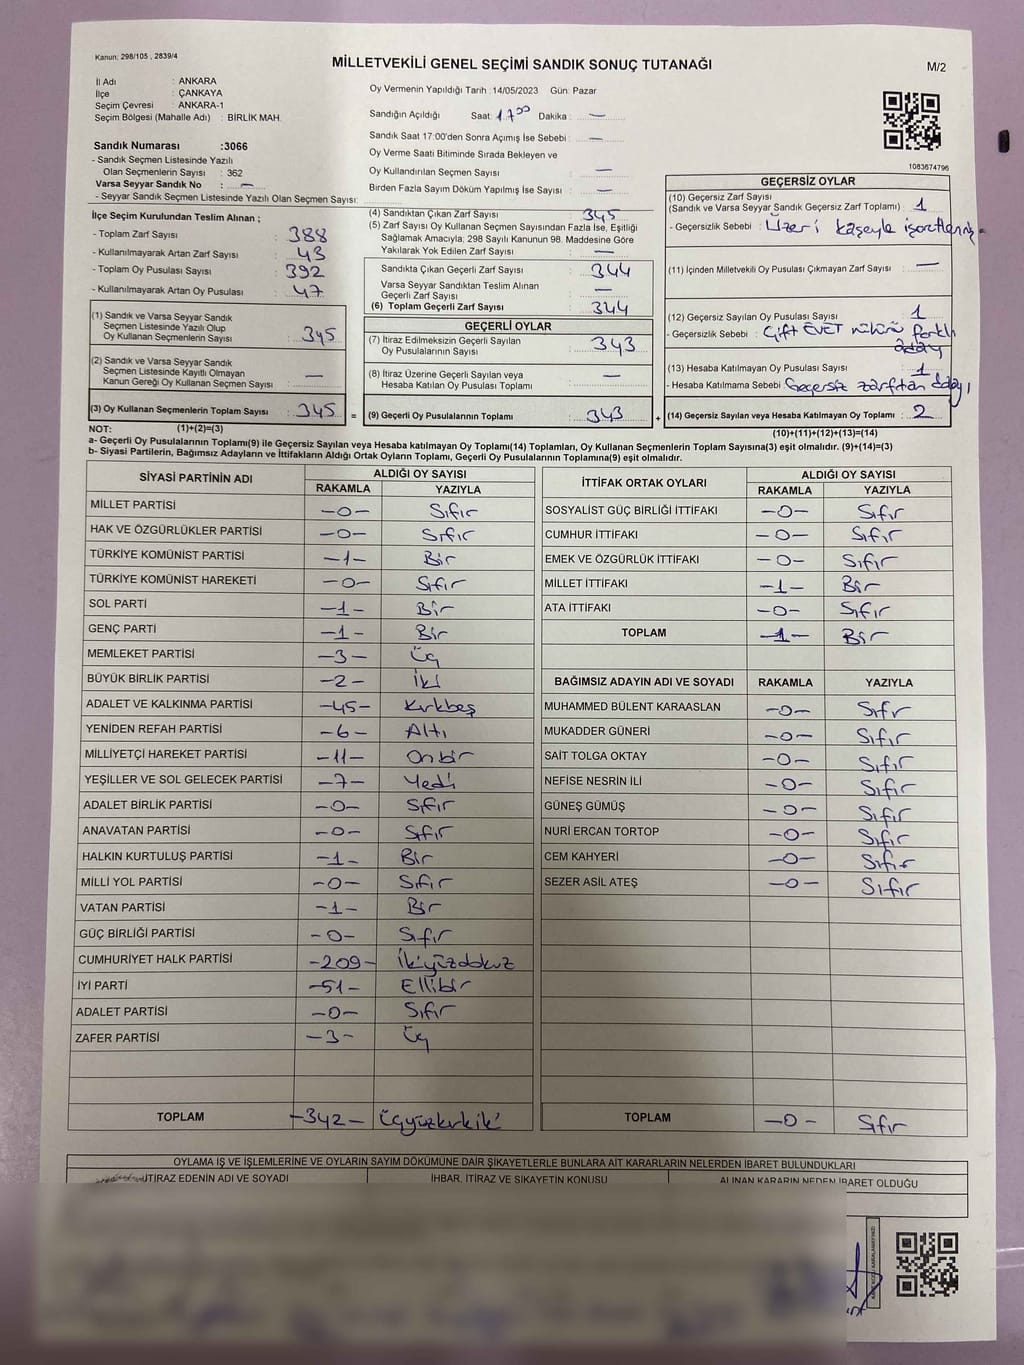 Kanun: 298/105 , 2839/4
MİLLETVEKİLİ GENEL SEÇİMİ SANDIK SONUÇ TUTANAĞI
M/2
İl Adı : ANKARA
İlçe : ÇANKAYA
Seçim Çevresi : ANKARA-1
Seçim Bölgesi (Mahalle Adı) : BİRLİK MAH.
Oy Vermenin Yapıldığı Tarih : 14/05/2023 Gün: Pazar
Sandığın Açıldığı Saat: 17⁰⁰ Dakika : —
Sandık Saat 17:00'den Sonra Açımış İse Sebebi : —
Oy Verme Saati Bitiminde Sırada Bekleyen ve
Oy Kullandırılan Seçmen Sayısı : —
Birden Fazla Sayım Döküm Yapılmış İse Sayısı : —
1083674796
Sandık Numarası :3066
- Sandık Seçmen Listesinde Yazılı
Olan Seçmenlerin Sayısı : 362
Varsa Seyyar Sandık No : —
- Seyyar Sandık Seçmen Listesinde Yazılı Olan Seçmen Sayısı:
İlçe Seçim Kurulundan Teslim Alınan ;
- Toplam Zarf Sayısı : 388
- Kullanılmayarak Artan Zarf Sayısı : 43
- Toplam Oy Pusulası Sayısı : 392
- Kullanılmayarak Artan Oy Pusulası : 47
(1) Sandık ve Varsa Seyyar Sandık
Seçmen Listesinde Yazılı Olup
Oy Kullanan Seçmenlerin Sayısı : 345
(2) Sandık ve Varsa Seyyar Sandık
Seçmen Listesinde Kayıtlı Olmayan
Kanun Gereği Oy Kullanan Seçmen Sayısı : —
(3) Oy Kullanan Seçmenlerin Toplam Sayısı : 345 =
(4) Sandıktan Çıkan Zarf Sayısı : 345
(5) Zarf Sayısı Oy Kullanan Seçmen Sayısından Fazla İse, Eşitliği
Sağlamak Amacıyla, 298 Sayılı Kanunun 98. Maddesine Göre
Yakılarak Yok Edilen Zarf Sayısı : —
Sandıkta Çıkan Geçerli Zarf Sayısı : 344
Varsa Seyyar Sandıktan Teslim Alınan
Geçerli Zarf Sayısı : —
(6) Toplam Geçerli Zarf Sayısı : 344
GEÇERLİ OYLAR
(7) İtiraz Edilmeksizin Geçerli Sayılan
Oy Pusulalarının Sayısı : 343
(8) İtiraz Üzerine Geçerli Sayılan veya
Hesaba Katılan Oy Pusulası Toplamı : —
(9) Geçerli Oy Pusulalarının Toplamı : 343 +
GEÇERSİZ OYLAR
(10) Geçersiz Zarf Sayısı
(Sandık ve Varsa Seyyar Sandık Geçersiz Zarf Toplamı) : 1
- Geçersizlik Sebebi : Üzeri kaşeyle
(11) İçinden Milletvekili Oy Pusulası Çıkmayan Zarf Sayısı : —
(12) Geçersiz Sayılan Oy Pusulası Sayısı : 1
- Geçersizlik Sebebi : Çift EVET mührü farklı
aday
(13) Hesaba Katılmayan Oy Pusulası Sayısı : 1
- Hesaba Katılmama Sebebi : Geçersiz zarftan
(14) Geçersiz Sayılan veya Hesaba Katılmayan Oy Toplamı : 2
NOT: (1)+(2)=(3)
(10)+(11)+(12)+(13)=(14)
a- Geçerli Oy Pusulalarının Toplamı(9) ile Geçersiz Sayılan veya Hesaba katılmayan Oy Toplamı(14) Toplamları, Oy Kullanan Seçmenlerin Toplam Sayısına(3) eşit olmalıdır. (9)+(14)=(3)
b- Siyasi Partilerin, Bağımsız Adayların ve İttifakların Aldığı Ortak Oyların Toplamı, Geçerli Oy Pusulalarının Toplamına(9) eşit olmalıdır.
SİYASİ PARTİNİN ADI ALDIĞI OY SAYISI
RAKAMLA YAZIYLA
MİLLET PARTİSİ -0- Sıfır
HAK VE ÖZGÜRLÜKLER PARTİSİ -0- Sıfır
TÜRKİYE KOMÜNİST PARTİSİ -1- Bir
TÜRKİYE KOMÜNİST HAREKETİ -0- Sıfır
SOL PARTİ -1- Bir
GENÇ PARTİ -1- Bir
MEMLEKET PARTİSİ -3- Üç
BÜYÜK BİRLİK PARTİSİ -2- İki
ADALET VE KALKINMA PARTİSİ -45- Kırkbeş
YENİDEN REFAH PARTİSİ -6- Altı
MİLLİYETÇİ HAREKET PARTİSİ -11- Onbir
YEŞİLLER VE SOL GELECEK PARTİSİ -7- Yedi
ADALET BİRLİK PARTİSİ -0- Sıfır
ANAVATAN PARTİSİ -0- Sıfır
HALKIN KURTULUŞ PARTİSİ -1- Bir
MİLLİ YOL PARTİSİ -0- Sıfır
VATAN PARTİSİ -1- Bir
GÜÇ BİRLİĞİ PARTİSİ -0- Sıfır
CUMHURİYET HALK PARTİSİ -209- İkiyüzdokuz
İYİ PARTİ -51- Ellibir
ADALET PARTİSİ -0- Sıfır
ZAFER PARTİSİ -3- Üç
TOPLAM -342- Üçyüzkırkiki
İTTİFAK ORTAK OYLARI ALDIĞI OY SAYISI
RAKAMLA YAZIYLA
SOSYALİST GÜÇ BİRLİĞİ İTTİFAKI -0- Sıfır
CUMHUR İTTİFAKI -0- Sıfır
EMEK VE ÖZGÜRLÜK İTTİFAKI -0- Sıfır
MİLLET İTTİFAKI -1- Bir
ATA İTTİFAKI -0- Sıfır
TOPLAM -1- Bir
BAĞIMSIZ ADAYIN ADI VE SOYADI RAKAMLA YAZIYLA
MUHAMMED BÜLENT KARAASLAN -0- Sıfır
MUKADDER GÜNERİ -0- Sıfır
SAİT TOLGA OKTAY -0- Sıfır
NEFİSE NESRİN İLİ -0- Sıfır
GÜNEŞ GÜMÜŞ -0- Sıfır
NURİ ERCAN TORTOP -0- Sıfır
CEM KAHYERİ -0- Sıfır
SEZER ASİL ATEŞ -0- Sıfır
TOPLAM -0- Sıfır
OYLAMA İŞ VE İŞLEMLERİNE VE OYLARIN SAYIM DÖKÜMÜNE DAİR ŞİKAYETLERLE BUNLARA AİT KARARLARIN NELERDEN İBARET BULUNDUKLARI
İTİRAZ EDENİN ADI VE SOYADI İHBAR, İTİRAZ VE ŞİKAYETİN KONUSU ALINAN KARARIN NEDEN İBARET OLDUĞU